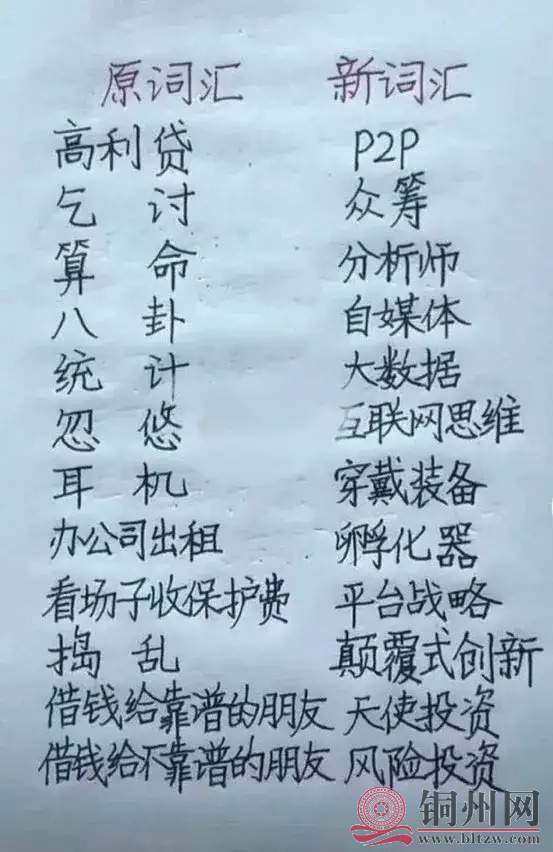 原词汇 新词汇
高利贷 P2P
乞讨 众筹
算命 分析师
八卦 自媒体
统计 大数据
忽悠 互联网思维
耳机 穿戴装备
办公司出租 孵化器
看场子收保护费 平台战略
捣乱 颠覆式创新
借钱给靠谱的朋友 天使投资
借钱给不靠谱的朋友 风险投资
铜州网
www.bltzw.com